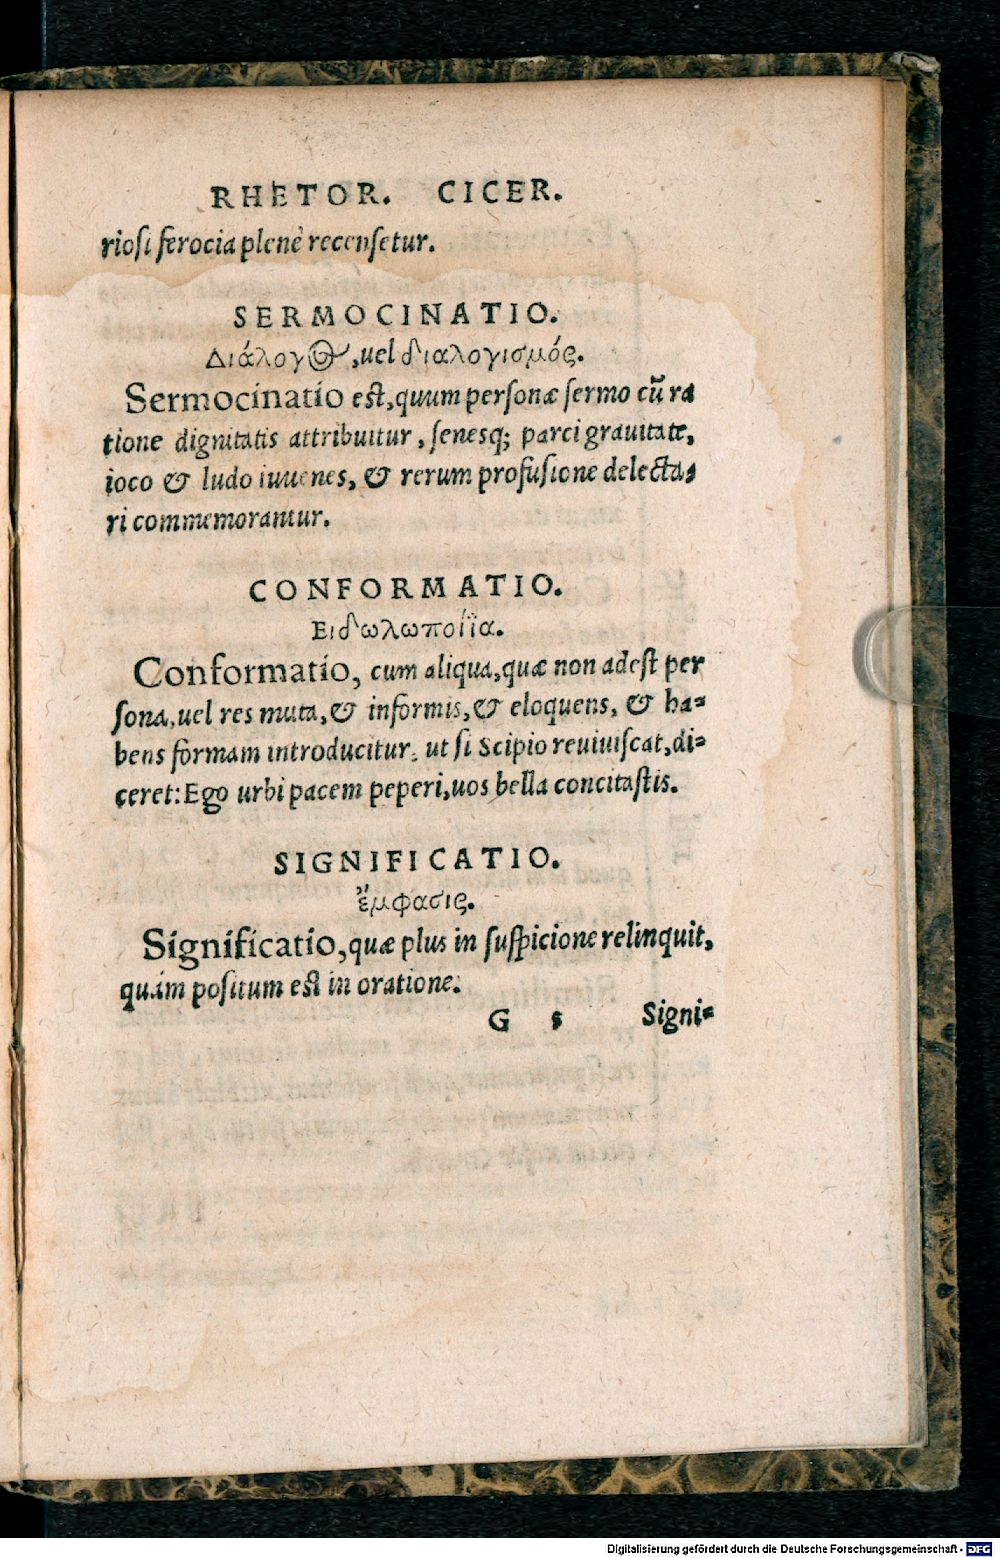 RHETOR. CICER.
riosi ferocia plenè recensetur.
SERMOCINATIO.
Διάλογος, uel διαλογισμός.
Sermocinatio est, quum personæ sermo cũ ra
tione dignitatis attribuitur, senesq; parci grauitate,
ioco & ludo iuuenes, & rerum profusione delecta-
ri commemorantur.
CONFORMATIO.
Ειδωλοποιΐα.
Conformatio, cum aliqua, quæ non adest per
sona, uel res muta, & informis, & eloquens, & ha-
bens formam introducitur: ut si Scipio reuiuiscat, di-
ceret: Ego urbi pacem peperi, uos bella concitastis.
SIGNIFICATIO.
ἔμφασις.
Significatio, quæ plus in suspicione relinquit,
quàm positum est in oratione.
G 5 Signi-
Digitalisierung gefördert durch die Deutsche Forschungsgemeinschaft - DFG